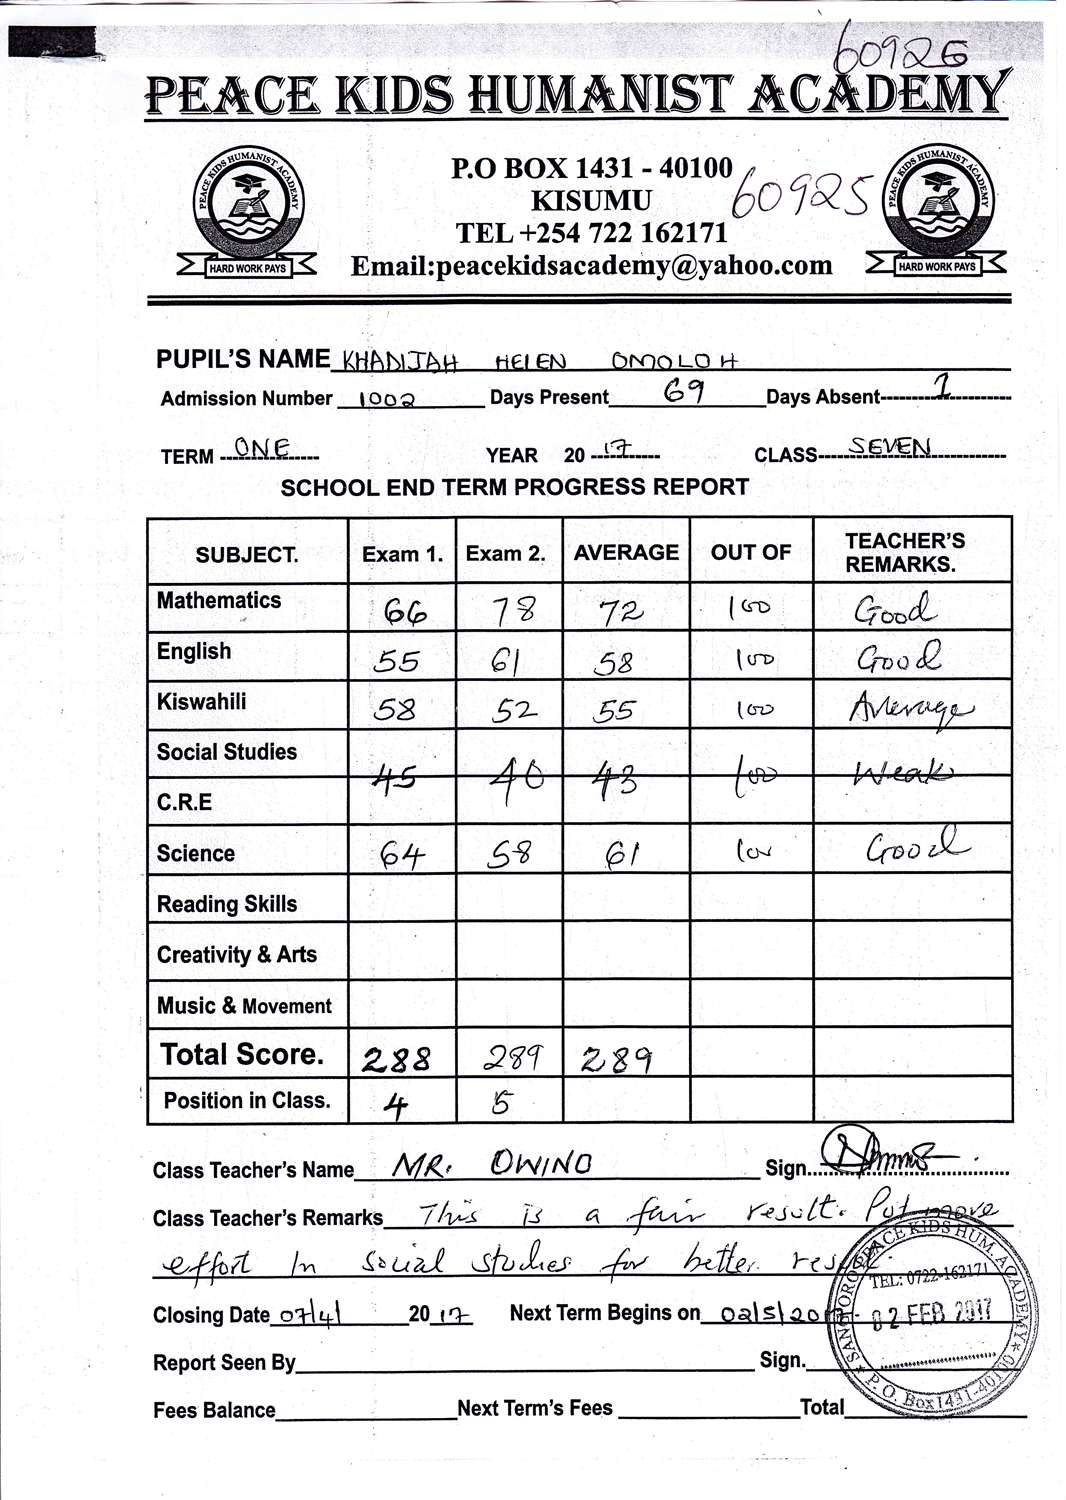 60925
PEACE KIDS HUMANIST ACADEMY
PEACE KIDS HUMANIST ACADEMY
HARD WORK PAYS
P.O BOX 1431 - 40100
KISUMU
60925
TEL +254 722 162171
Email:peacekidsacademy@yahoo.com
PEACE KIDS HUMANIST ACADEMY
HARD WORK PAYS
PUPIL'S NAME KHADIJAH HELEN OMOLOH
Admission Number 1002 Days Present 69 Days Absent 1
TERM ONE YEAR 20 17 CLASS SEVEN
SCHOOL END TERM PROGRESS REPORT
SUBJECT. Exam 1. Exam 2. AVERAGE OUT OF TEACHER'S REMARKS.
Mathematics 66 78 72 100 Good
English 55 61 58 100 Good
Kiswahili 58 52 55 100 Average
Social Studies
45 40 43 100 Weak
C.R.E
Science 64 58 61 100 Good
Reading Skills
Creativity & Arts
Music & Movement
Total Score. 288 289 289
Position in Class. 4 5
Class Teacher's Name MR. OWINO Sign.
Class Teacher's Remarks This is a fair result. Put more
effort In social studies for better result.
Closing Date 07/4/ 20 17 Next Term Begins on 02/5/2017
Report Seen By Sign.
Fees Balance Next Term's Fees Total
SANGORO PEACE KIDS HUM. ACADEMY
TEL: 0722-162171
02 FEB 2017
P. O. Box 1431-40100